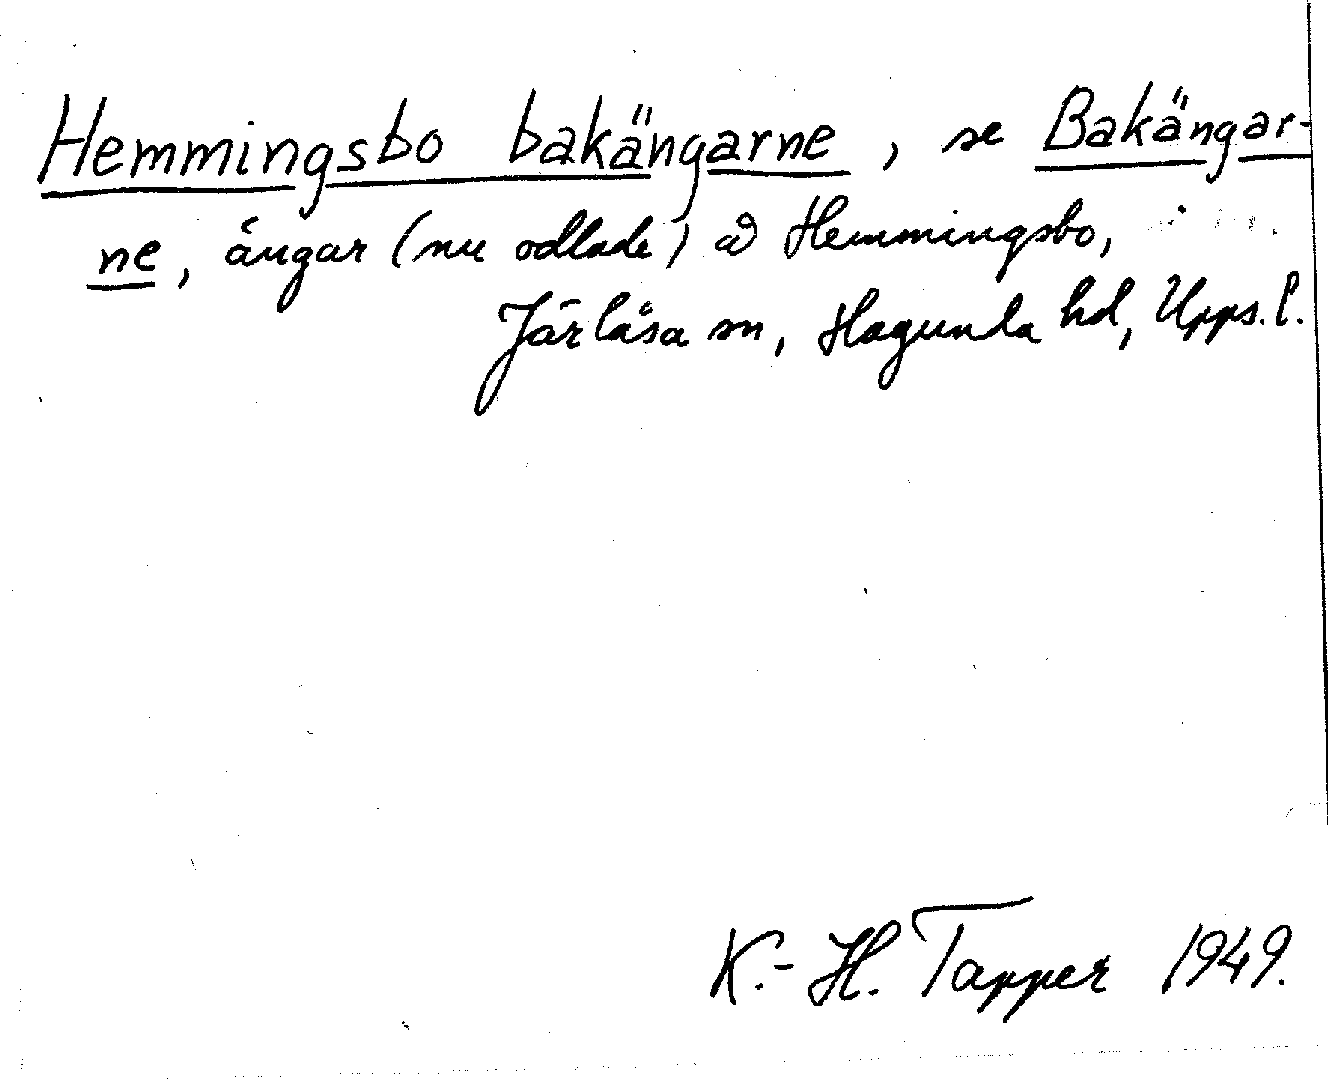 Hemmingsbo bakängarne, se Bakängar-
ne, ängar (nu odlade) åt Hemmingsbo,
Järlåsa sn, Hagunda hd, Upps. l.
K.-H. Tapper 1949.